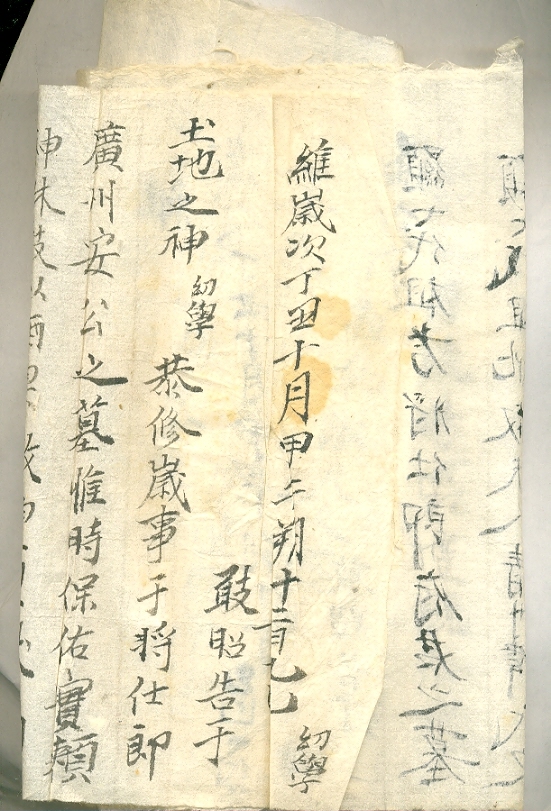 七代祖考將仕郎府君之墓
維歲次丁丑十月甲午朔十二日乙巳 幼學
敢昭告于
土地之神 幼學
恭修歲事于將仕郎
廣州安公之墓惟時保佑實賴
神休敢以酒